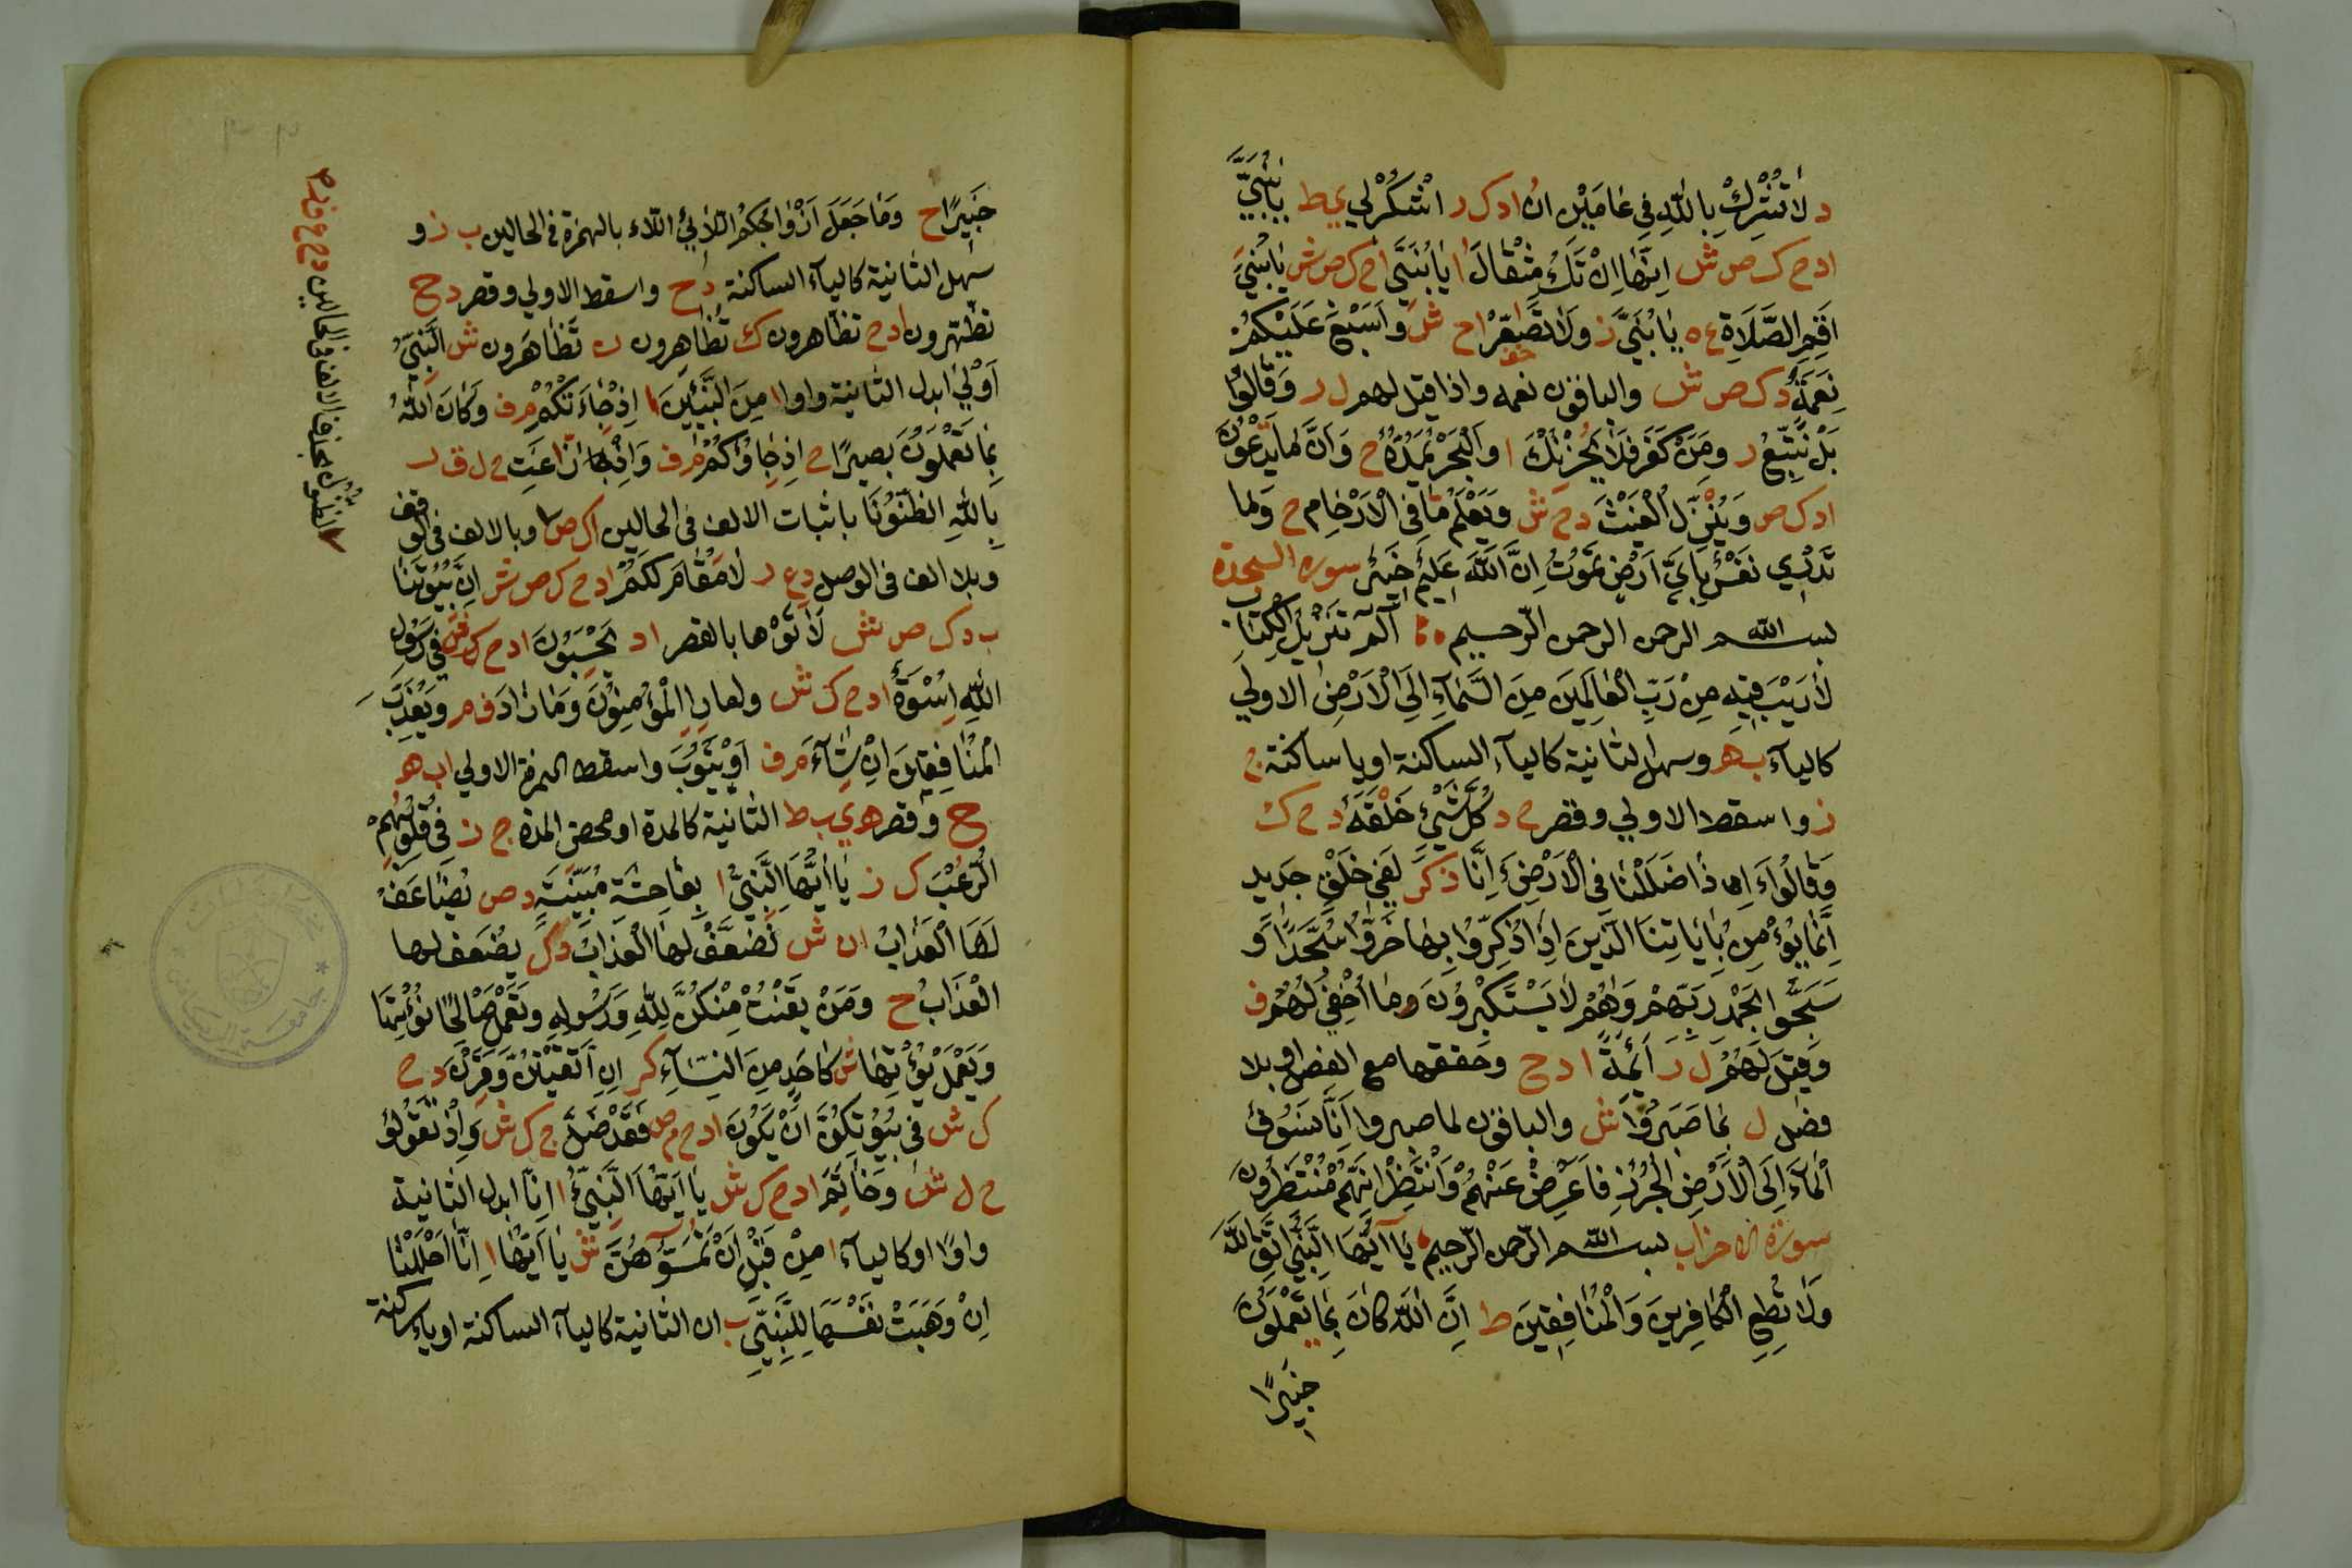 د لا تُشْرِكْ بِاللّٰهِ فِي عَامَيْنِ انْ ا د ك ر اشْكُرْ لِي ي ط يَابُنَيِّ
ا د ح ك ص ش اِنَّهَا اِنْ تَكُ مِثْقَالَ ا يَا بُنَيَّ ا ح ك ص ش يَا بُنَيْ
اَقِمِ الصَّلَاةِ ع ه يَا بُنَيَّ ز وَلَا تُصَاعِرْ ا ح ش وَاَسْبَغَ عَلَيْكُمْ
نِعْمَةً د ك ص ش والباقون نعمه واذا قيل لهم ل ر وَقَالُوْا
بَلْ نَتَّبِعُ ر وَمَنْ كَفَرَ فَلَا يُحْزِنْكَ ا وَالْبَحْرَ يَمُدُّهُ ح وَاَنَّ مَا يَدْعُوْنَ
ا د ك ص وَيُنْزِلُ الْغَيْثَ د ح ش وَيَعْلَمُ مَا فِي الْاَرْحَامِ ح وَمَا
تَدْرِي نَفْسٌ بِاَيِّ اَرْضٍ تَمُوْتُ اِنَّ اللّٰهَ عَلِيْمٌ خَبِيْرٌ سورة السجدة
بسم الله الرحمن الرحمن الرّحيم الٓمٓ تَنْزِيْلُ الْكِتَابِ
لَا رَيْبَ فِيْهِ مِنْ رَبِّ الْعَالَمِيْنَ مِنَ السَّمَآءِ اِلَى الْاَرْضِ الاولي
كاليآء ب ه وسهل الثانية كاليآء الساكنة او يا ساكنة ج
ز واسقط الاولي وقصر ح د كُلَّ شَيْءٍ خَلْقَهُ د ح ك
وَقَالُوْا ءَ اِذَا ضَلَلْنَا فِي الْاَرْضِ ءَ اِنَّا ذ ك ر لَفِي خَلْقٍ جَدِيدٍ
اِنَّمَا يُؤْمِنُ بِاٰيَاتِنَا الَّذِيْنَ اِذَا ذُكِّرُوْا بِهَا خَرُّوْا سُجَّدًا وَ
سَبَّحُوْا بِحَمْدِ رَبِّهِمْ وَهُمْ لَا يَسْتَكْبِرُوْنَ وَمَا اُخْفِيْ لَهُمْ ف
وَقِيْلَ لَهُمْ ل ر اَئِمَّةً ا د ح وحققها مع الفصل وبلا
فصل ل بِمَا صَبَرُوْا ش والباقون لما صبروا اَنَّا نَسُوْقُ
الْمَآءَ اِلَى الْاَرْضِ الْجُرُزِ فَاَعْرِضْ عَنْهُمْ وَانْتَظِرْ اِنَّهُمْ مُنْتَظِرُوْنَ
سورة الاحزاب بسم الله الرّحمن الرّحيم يَا اَيُّهَا النَّبِيُّ اتَّقِ اللّٰهَ
وَلَا تُطِعِ الْكَافِرِيْنَ وَالْمُنَافِقِيْنَ ط اِنَّ اللّٰهَ كَانَ بِمَا يَعْمَلُوْنَ
خَبِيْرًا
خَبِيْرًا ح وَمَا جَعَلَ اَزْوَاجَكُمُ اللَّائِي اللاء بالهمزة في الحالين ب ز و
سهل الثانية كاليآء الساكنة د ح واسقط الاولي وقصر د ح ج
تظّهّرون ا د ح تظاهرون ك تُظَاهِرون ن تَظَاهَرون ش النَّبِيُّ
اَوْلٰى ابدل الثانية واوا ا مِنَ النَّبِيِّيْنَ ا اِذْ جَاءَتْكُمْ م ف وَكَانَ اللّٰهُ
بِمَا يَعْمَلُوْنَ بَصِيْرًا ح اِذْ جَاؤُكُمْ م ف وَاِذْ زَاغَتِ ح ل ق ر
بِاللّٰهِ الظُّنُوْنَا باثبات الالف في الحالين ا ك ص وبالالف في الوقف
وبلا الف في الوصل د ع ر لَا مَقَامَ لَكُمْ ا د ح ك ص ش اِنَّ بُيُوْتَنَا
ب د ك ص ش لَاٰتَوْهَا بالقصر ا د يَحْسِبُوْنَ ا د ح ك ش فِي رَسُوْلِ
اللّٰهِ اِسْوَةٌ ا د ح ك ش ولما را الْمُؤْمِنُوْنَ وَمَا زَادَ ف م وَيُعَذِّبَ
الْمُنَافِقِيْنَ اِنْ شَآءَ م ف اَوْ يَتُوْبَ واسقط الهمزة الاولي ا ب ه
ح وقصر ه ي ب ط الثانية كالمدة او محض المدة ج ز فِي قُلُوْبِهِمُ
الرُّعْبَ ك ر يَا اَيُّهَا النَّبِيُّ ا بِفَاحِشَةٍ مُبَيَّنَةٍ د ص يُضَاعَفْ
لَهَا الْعَذَابُ ا ن ش نُضَعِّفْ لَهَا الْعَذَابَ د ك يضعف لها
الْعَذَابُ ح وَمَنْ يَقْنُتْ مِنْكُنَّ لِلّٰهِ وَرَسُوْلِهِ وَتَعْمَلْ صَالِحًا نُؤْتِهَا
وَيَعْمَلْ يُؤْتِهَا ش كَاَحَدٍ مِنَ النِّسَآءِ ك ر اِنِ اتَّقَيْتُنَّ وَقِرْنَ د ح
ك ش فِي بُيُوْتِكُنَّ اَنْ تَكُوْنَ ا د ح م ص فَقَدْ ضَلَّ ج ك ش وَاِذْ تَقُوْلُ
ح ل ش وَخَاتِمَ ا د ح ك ش يَا اَيُّهَا النَّبِيُّ ا اِنَّا ابدل الثانية
واوًا او كاليآء ا مِنْ قَبْلِ اَنْ تَمَسُّوْهُنَّ ش يَا اَيُّهَا ا اِنَّا اَحْلَلْنَا
اِنْ وَهَبَتْ نَفْسَهَا لِلنَّبِيِّ ب ان الثانية كاليآء الساكنة او ياء ساكنة
الظنون بحذف الالف في الحالين